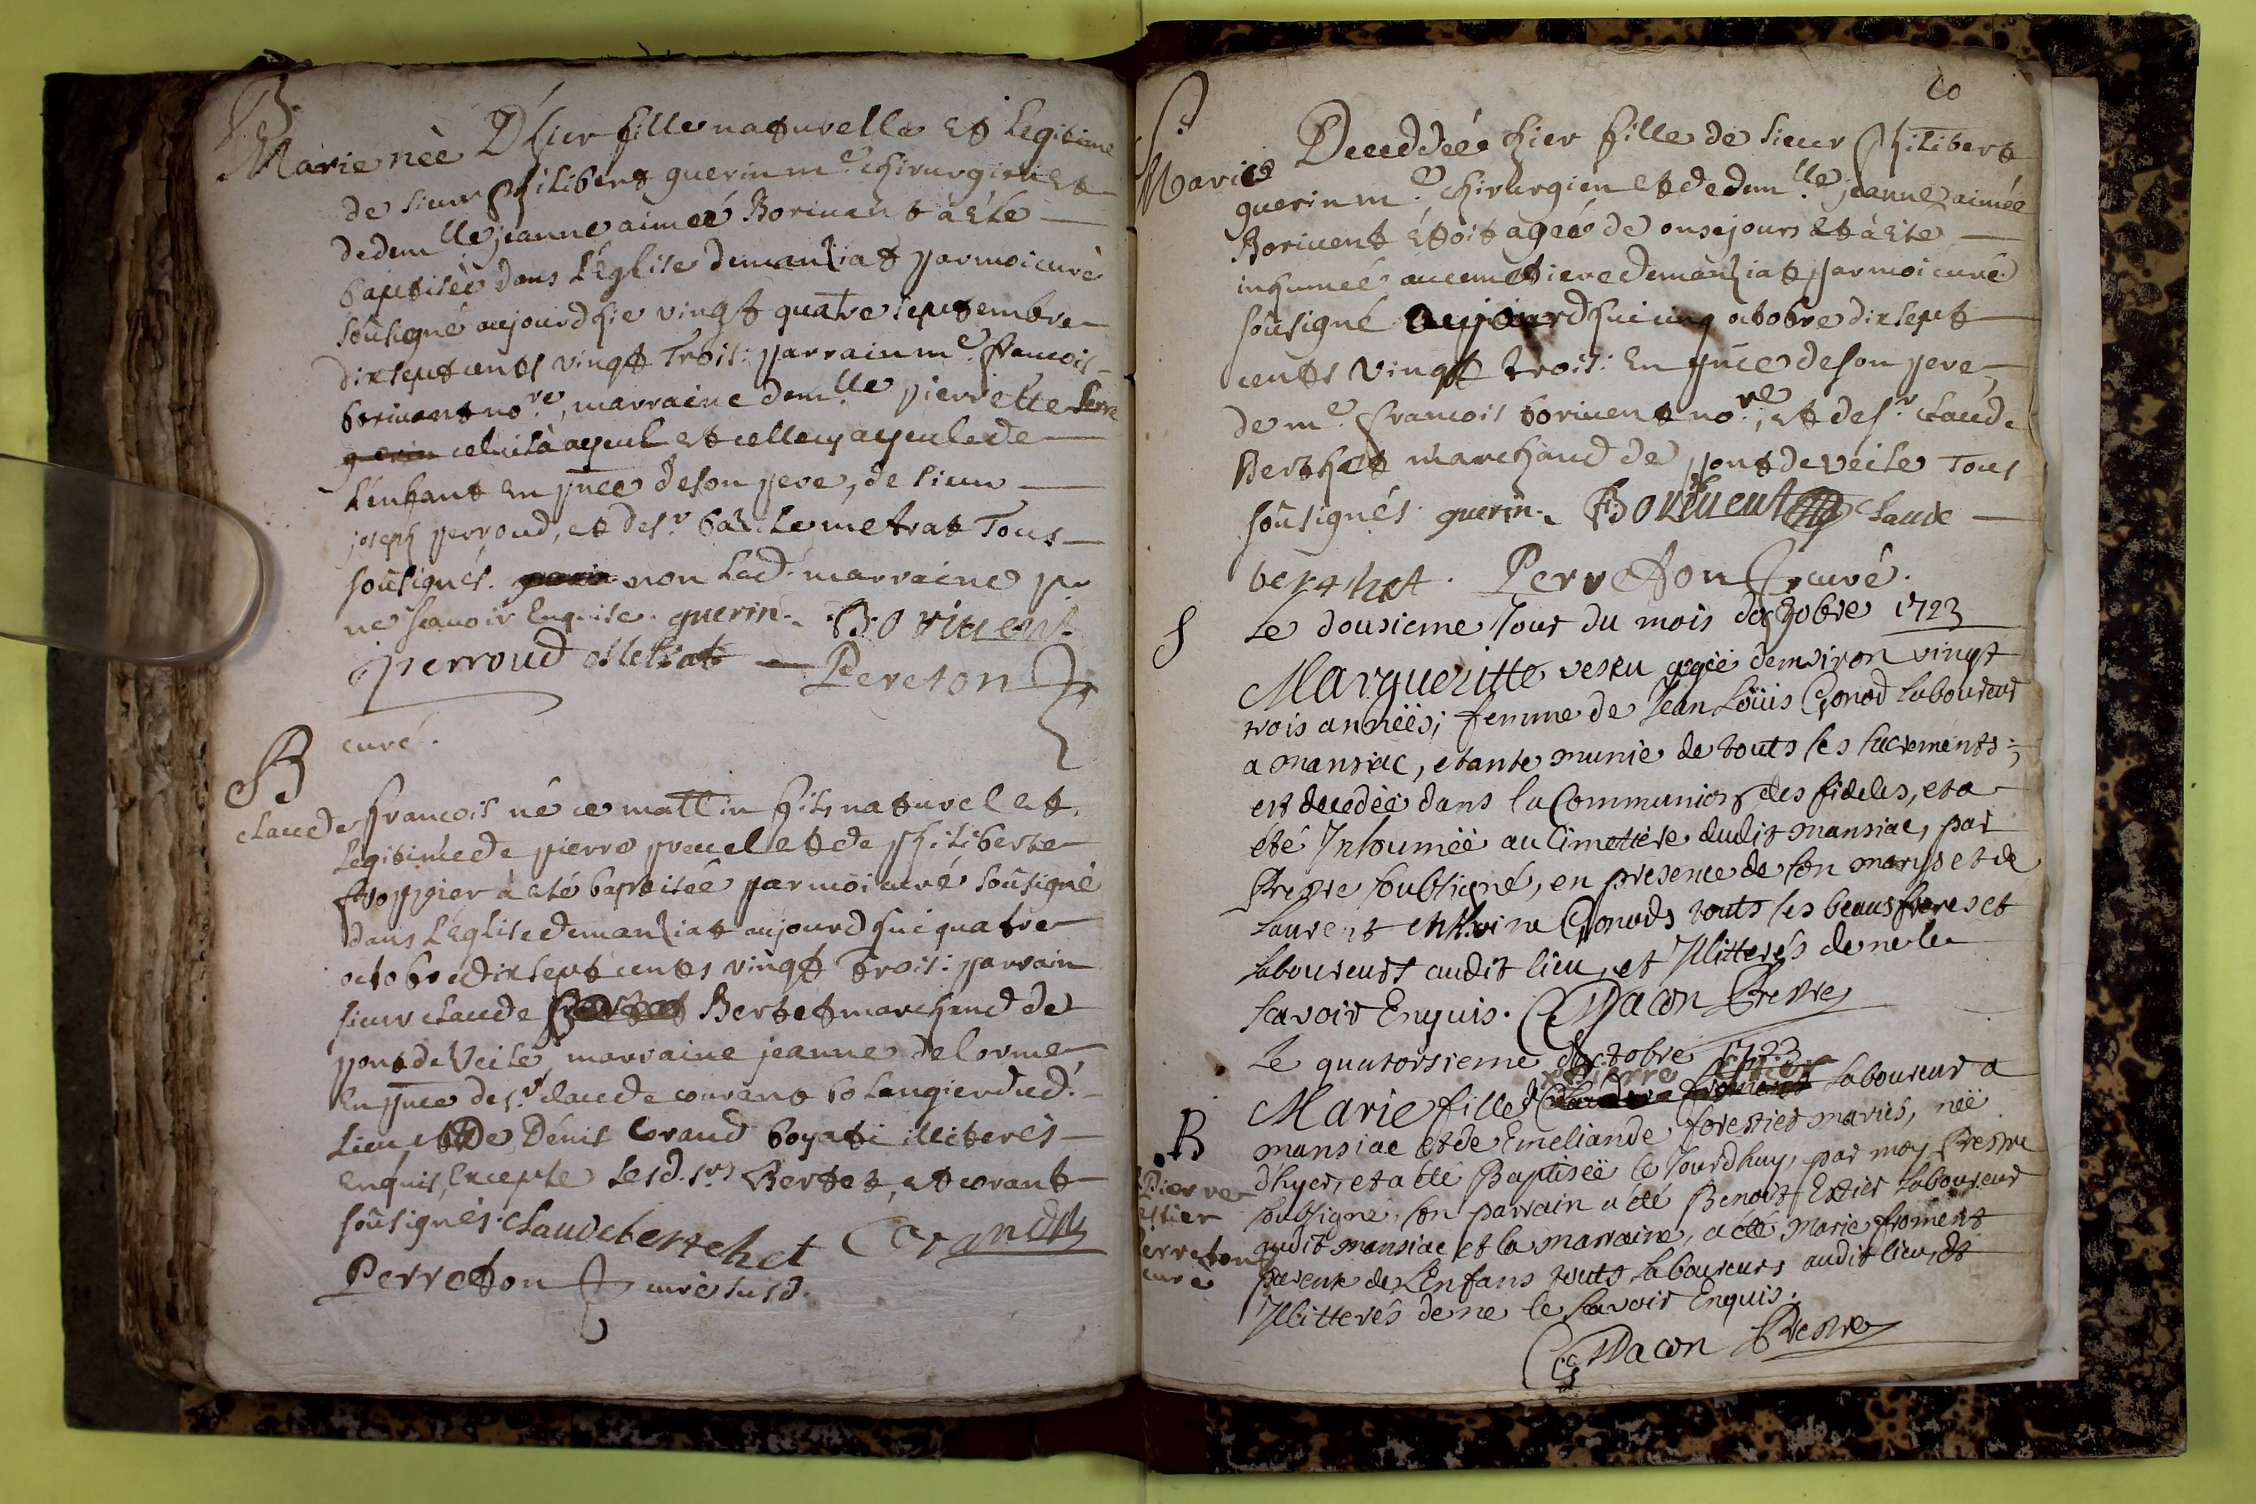 B
Marie née D'hier fille naturelle et Legitime
de sieur philibert guerin m.e chirurgien et
de dem.lle jeanne aimeé Borivent à été
baptisée dans L'église demanziat par moi curé
soûsigné aujourd'hie vingt quatre septembre
dixsept cents vingt trois: parrain m.e francois
borivent no.re, marraine dem.lle pierrette Serre
guerin celui là ayeul et celle cy ayeule de
L'enfant en pnce de son pere, de sieur
joseph perroud, et de s.r bazile metrat Tous
soûsignés. non Lad. marraine pr
ne scavoir Enquise. guerin. Borivent
perroud Metrat Pereton
curé.
B
claude francois né ce mattin fils naturel et
Legitime de pierre pruel et de philiberte
froppier à eté baptisée par moi curé soûsigné
dans L'Eglise demanziat aujourd'hui quatre
octobre dixsept cents vingt trois: parrain
sieur claude Bertet marchand de
pont de Veile, marraine jeanne delorme,
En pnce de s.r claude corant bolangier dud.
Lieu et De Dénis Corand boyati illiterés
Enquis, Excepté Lesd. s.rs Bertet, et corant
soûsignés. Claude berthet Corand
Perreton curé susd.
60
S
Marie Deceddée hier fille de sieur philibert
guerin m.e chirurgien et de dem.lle jeanne aimée
Borivent étoit ageé de onse jours et à eté
inhumeé au cemetiere demanziat par moi curé
soûsigné aujourd'hui cinq octobre dixsept
cents vingt trois: En pnce de son pere,
de m.e francois borivent no.re, et de s.r claude
Berthet marchand de pont de véile Tous
soûsignés. guerin. Borivent Claude
berthet. Perreton curé.
S
Le dousieme Jour du mois doctobre 1723
Margueritte veseu agée demviron vingt
trois annéés; femme de Jean Loüis Gonod laboureur
a mansiac, etante munie de touts les sacrements;
est decedée dans la Communion des fideles, et a
eté Inhouméé au Cimettiere dudit mansiac, par
Prestre soubsigné, en presence de son marys et de
Laurent Gonods touts les beaus freres et
laboureurs audit lieu, et Illitterés de ne le
scavoir Enquis. Dacon Prestre
Le quatorsieme doctobre 1723
pierre Estier
B
Marie fille d laboureur a
mansiac et de Emeliande forestier mariés, néé
d'hyer, et a eté Baptiséé ce Jourd'huy, par moy Prestre
soubsigné, son parrain a eté Benoit Estier laboureur
audit mansiac et la marraine, a eté Marie froment
parente de L'Enfans touts laboureurs audit lieu, et
Illitterés de ne le scavoir Enquis.
Dacon Prestre
Pierre
estier
perreton
curé